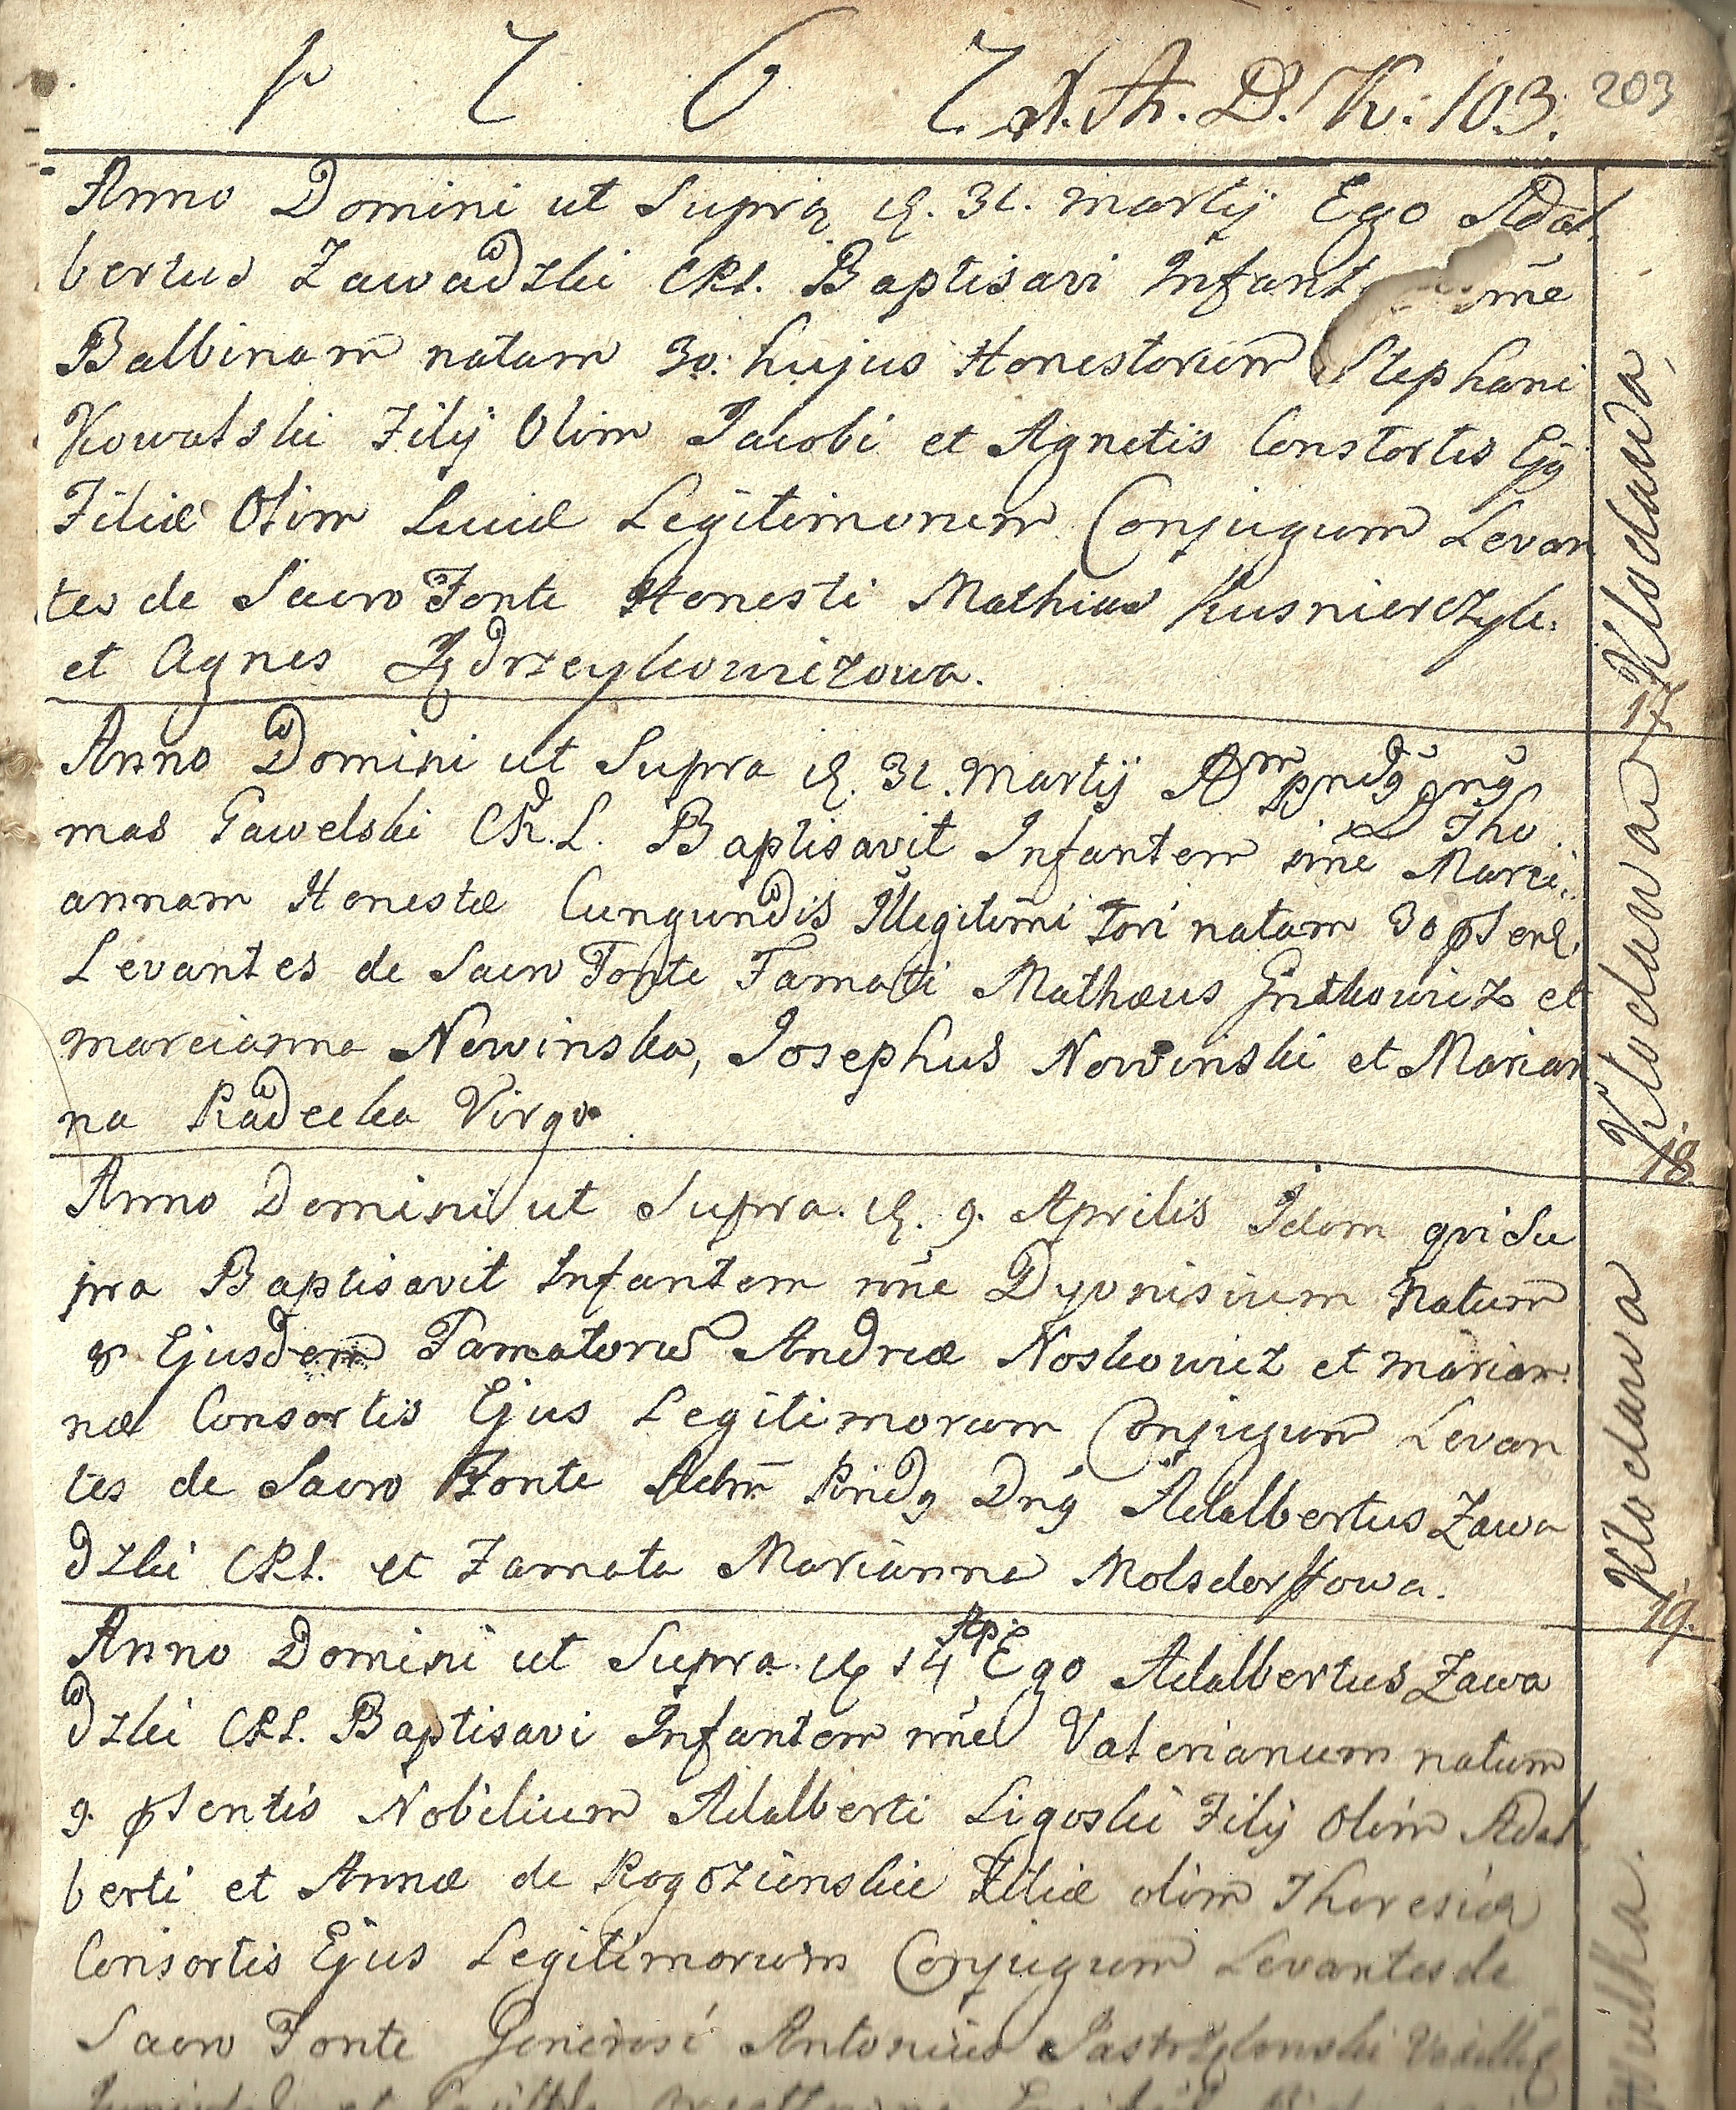 1 7 6 7. A. A. D. K: 103. 203
Anno Domini ut Supra d. 31. Martij Ego Adal
bertus Zawadzki CRL. Baptisavi Infant nõie
Balbinam natam 30. hujus Honestorum Stephani
Kowalski Filij Olim Jacobi et Agnetis Consortis Ejq
Filiæ Olim Luciæ Legitimorum Conjugum Levan
tes de Sacro Fonte Honesti Mathias Kusnierczyk.
et Agnes Jędrzeykowiczowa.
Kłodawa
17
Anno Domini ut Supra d. 31. Martij Adm Rndq Dnq Tho
mas Gawelski CR.L. Baptisavit Infantem nõie Marci
annam Honestæ Cungundis Illegitimi Tori natam 30 pSent.
Levantes de Sacro Fonte Famati Mathæus Gutkowicz et
Marcianna Nowinska, Josephus Nowinski et Marian
na Radecka Virgo.
Kłodawa
18
Anno Domini ut Supra. d. 9. Aprilis Idem qvi Su
pra Baptisavit Infantem nõie Dyonisium Natum
8 Ejusdem Famatorũ Andreæ Noskowicz et Marian
næ Consortis Ejus Legitimorum Conjugum Levan
tes de Sacro Fonte Adm Rndq Dnq Adalbertus Zawa
dzki CRL. et Famata Marianna Molsdorffowa.
Kłodawa
19.
Anno Domini ut Supra. d. 14 Ap Ego Adalbertus Zawa
dzki CRL. Baptisavi Infantem nõie Valerianum natum
9. pSentis Nobilium Adalberti Ligoski Filij Olim Adal
berti et Annæ de Rogozienskie Filiæ olim Theresiæ
Consortis Ejus Legitimorum Conjugum Levantes de
Sacro Fonte Generosi Antonius